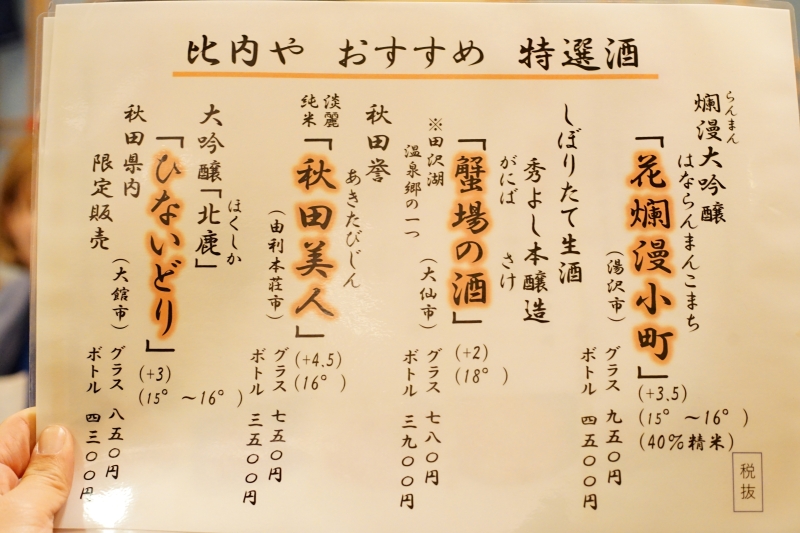 比内や おすすめ 特選酒
らんまん
爛漫大吟醸
はならんまんこまち
「花爛漫小町」
(湯沢市)
(+3.5)
(15° ～16° )
(40%精米)
グラス 九五〇円
ボトル 四五〇〇円
税抜
しぼりたて生酒
秀よし本醸造
がにば さけ
「蟹場の酒」
※田沢湖
温泉郷の一つ
(大仙市)
(+2)
(18° )
グラス 七八〇円
ボトル 三九〇〇円
秋田誉
あきたびじん
淡麗
純米
「秋田美人」
(由利本荘市)
(+4.5)
(16° )
グラス 七五〇円
ボトル 三五〇〇円
ほくしか
大吟醸「北鹿」
「ひないどり」
秋田県内
限定販売
(大館市)
(+3)
(15° ～16° )
グラス 八五〇円
ボトル 四三〇〇円